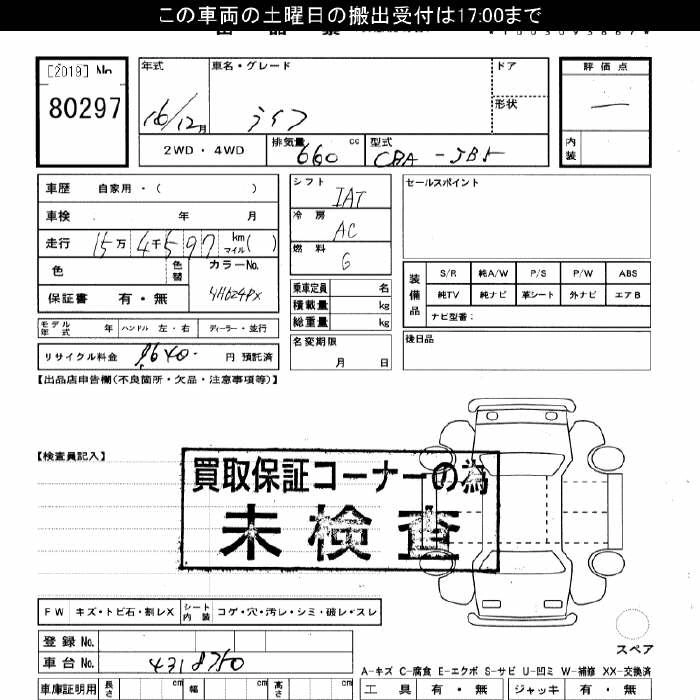 この車両の土曜日の搬出受付は17:00まで
[2019] No
80297
年式 車名・グレード ドア 評価点
16/12月 ライフ 形状 —
2WD・4WD 排気量 660 cc 型式 CBA-JB5 内装
車歴 自家用・( )
車検 年 月
走行 15万4千597 km マイル( )
色 色替 カラーNo.
保証書 有・無 YH624PX
モデル年式 年 ハンドル 左・右 ディーラー・並行
リサイクル料金 9640. 円 預託済
シフト IAT
冷房 AC
燃料 G
乗車定員 名
積載量 kg
総重量 kg
名変期限
月 日
セールスポイント
装備品 S/R 純A/W P/S P/W ABS
純TV 純ナビ 革シート 外ナビ エアB
ナビ型番:
後日品
【出品店申告欄(不良箇所・欠品・注意事項等)】
【検査員記入】
買取保証コーナーの為
未検査
FW キズ・トビ石・割レX シート内装 コゲ・穴・汚レ・シミ・破レ・スレ
登録No.
車台No. 4318750
スペア
A-キズ C-腐食 E-エクボ S-サビ U-凹ミ W-補修 XX-交換済
車庫証明用 長さ cm 幅 cm 高さ cm 工具 有・無 ジャッキ 有・無